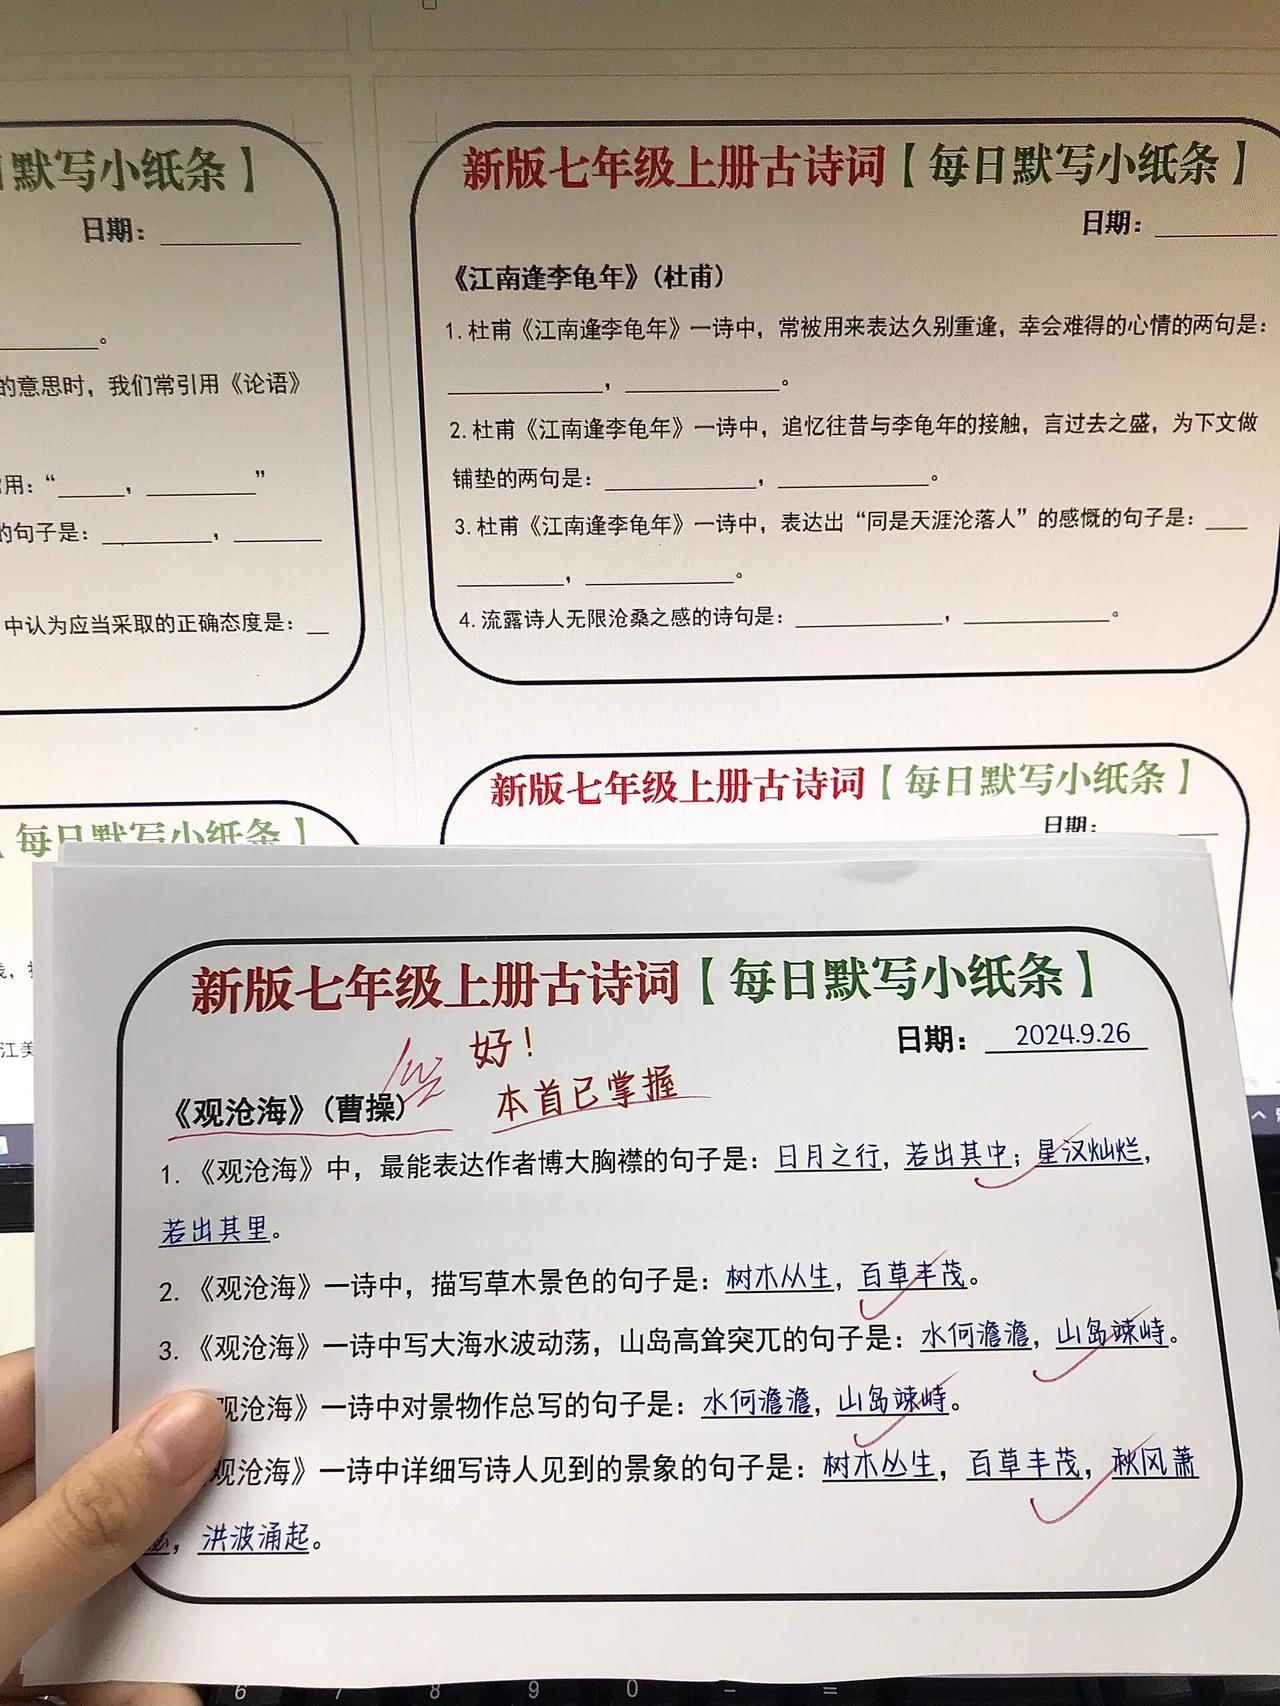 默写小纸条】
日期：
。
的意思时，我们常引用《论语》
用：“，”
的句子是：，
中认为应当采取的正确态度是：
新版七年级上册古诗词【每日默写小纸条】
日期：
《江南逢李龟年》（杜甫）
1.杜甫《江南逢李龟年》一诗中，常被用来表达久别重逢，幸会难得的心情的两句是：
，。
2.杜甫《江南逢李龟年》一诗中，追忆往昔与李龟年的接触，言过去之盛，为下文做
铺垫的两句是：，。
3.杜甫《江南逢李龟年》一诗中，表达出“同是天涯沦落人”的感慨的句子是：
，。
4.流露诗人无限沧桑之感的诗句是：，。
【每日默写小纸条】
江美
新版七年级上册古诗词【每日默写小纸条】
日期：
新版七年级上册古诗词【每日默写小纸条】
日期：2024.9.26
好！
本首已掌握
《观沧海》（曹操）
1.《观沧海》中，最能表达作者博大胸襟的句子是：日月之行，若出其中；星汉灿烂，
若出其里。
2.《观沧海》一诗中，描写草木景色的句子是：树木丛生，百草丰茂。
3.《观沧海》一诗中写大海水波动荡，山岛高耸突兀的句子是：水何澹澹，山岛竦峙。
观沧海》一诗中对景物作总写的句子是：水何澹澹，山岛竦峙。
观沧海》一诗中详细写诗人见到的景象的句子是：树木丛生，百草丰茂，秋风萧
瑟，洪波涌起。
6 7 8 9 0 - =